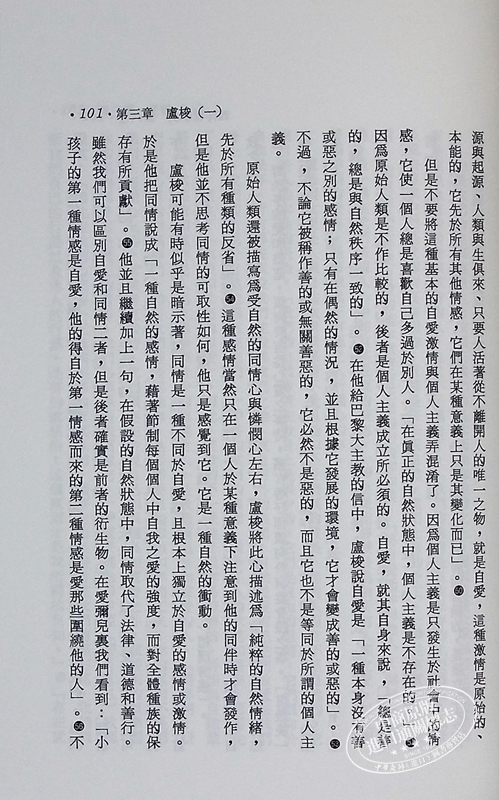 ·101· 第三章　盧梭（一）
源與起源、人類與生俱來、只要人活著從不離開人的唯一之物，就是自愛，這種激情是原始的、
本能的，它先於所有其他情感，它們在某種意義上只是其變化而已」。
但是不要將這種基本的自愛激情與個人主義弄混淆了。因爲個人主義是只發生於社會中的情
感，它使一個人總是喜歡自己多過於別人。「在眞正的自然狀態中，個人主義是不存在的」，
因爲原始人類是不作比較的，後者是個人主義成立所必須的。自愛，就其自身來說，「總是善
的，總是與自然秩序一致的」。在他給巴黎大主教的信中，盧梭說自愛是「一種本身沒有善
或惡之別的感情；只有在偶然的情況，並且根據它發展的環境，它才會變成善的或惡的」。
不過，不論它被稱作善的或無關善惡的，它必然不是惡的，而且它也不是等同於所謂的個人主
義。
原始人類還被描寫爲受自然的同情心與憐憫心左右，盧梭將此心描述爲「純粹的自然情緒，
先於所有種類的反省」。這種感情當然只在一個人於某種意義下注意到他的同伴時才會發作，
但是他並不思考同情的可取性如何，他只是感覺到它。它是一種自然的衝動。
盧梭可能有時似乎是暗示著，同情是一種不同於自愛，且根本上獨立於自愛的感情或激情。
於是他把同情說成「一種自然的感情，藉著節制每個個人中自我之愛的強度，而對全體種族的保
存有所貢獻」。他並且繼續加上一句，在假設的自然狀態中，同情取代了法律、道德和善行。
雖然我們可以區別自愛和同情二者，但是後者確實是前者的衍生物。在愛彌兒裏我們看到：「小
孩子的第一種情感是自愛，他的得自於第一情感而來的第二種情感是愛那些圍繞他的人」。不